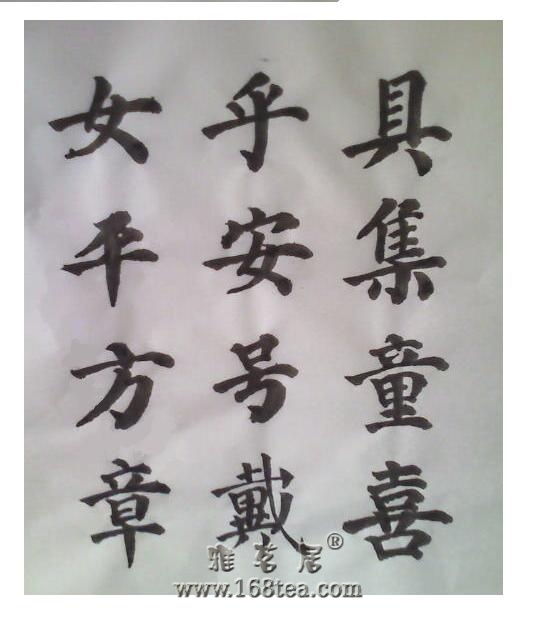 具集童喜
乎安号戴
女平方章
雅茗居®
www.168tea.com